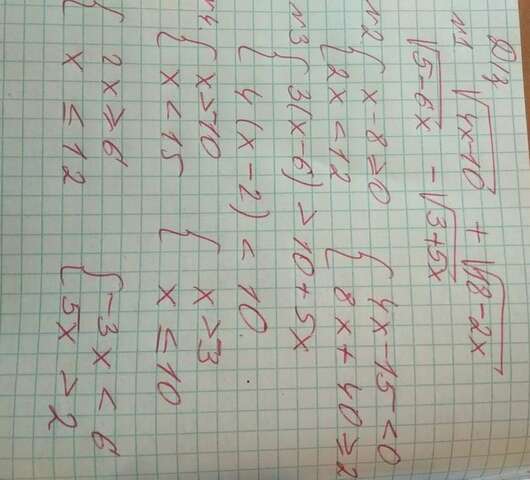 Д/з
№1 √4x-10 + √18-2x
√5-6x - √3+5x
№2 { x-8≥0 { 4x-15<0
2x<12 8x+40≥2
№3 { 3(x-6)>10+5x
4(x-2)<10.
№4. { x>10 { x>3
x<15 x≤10
{ 2x≥6 { -3x<6
x≤12 5x>2